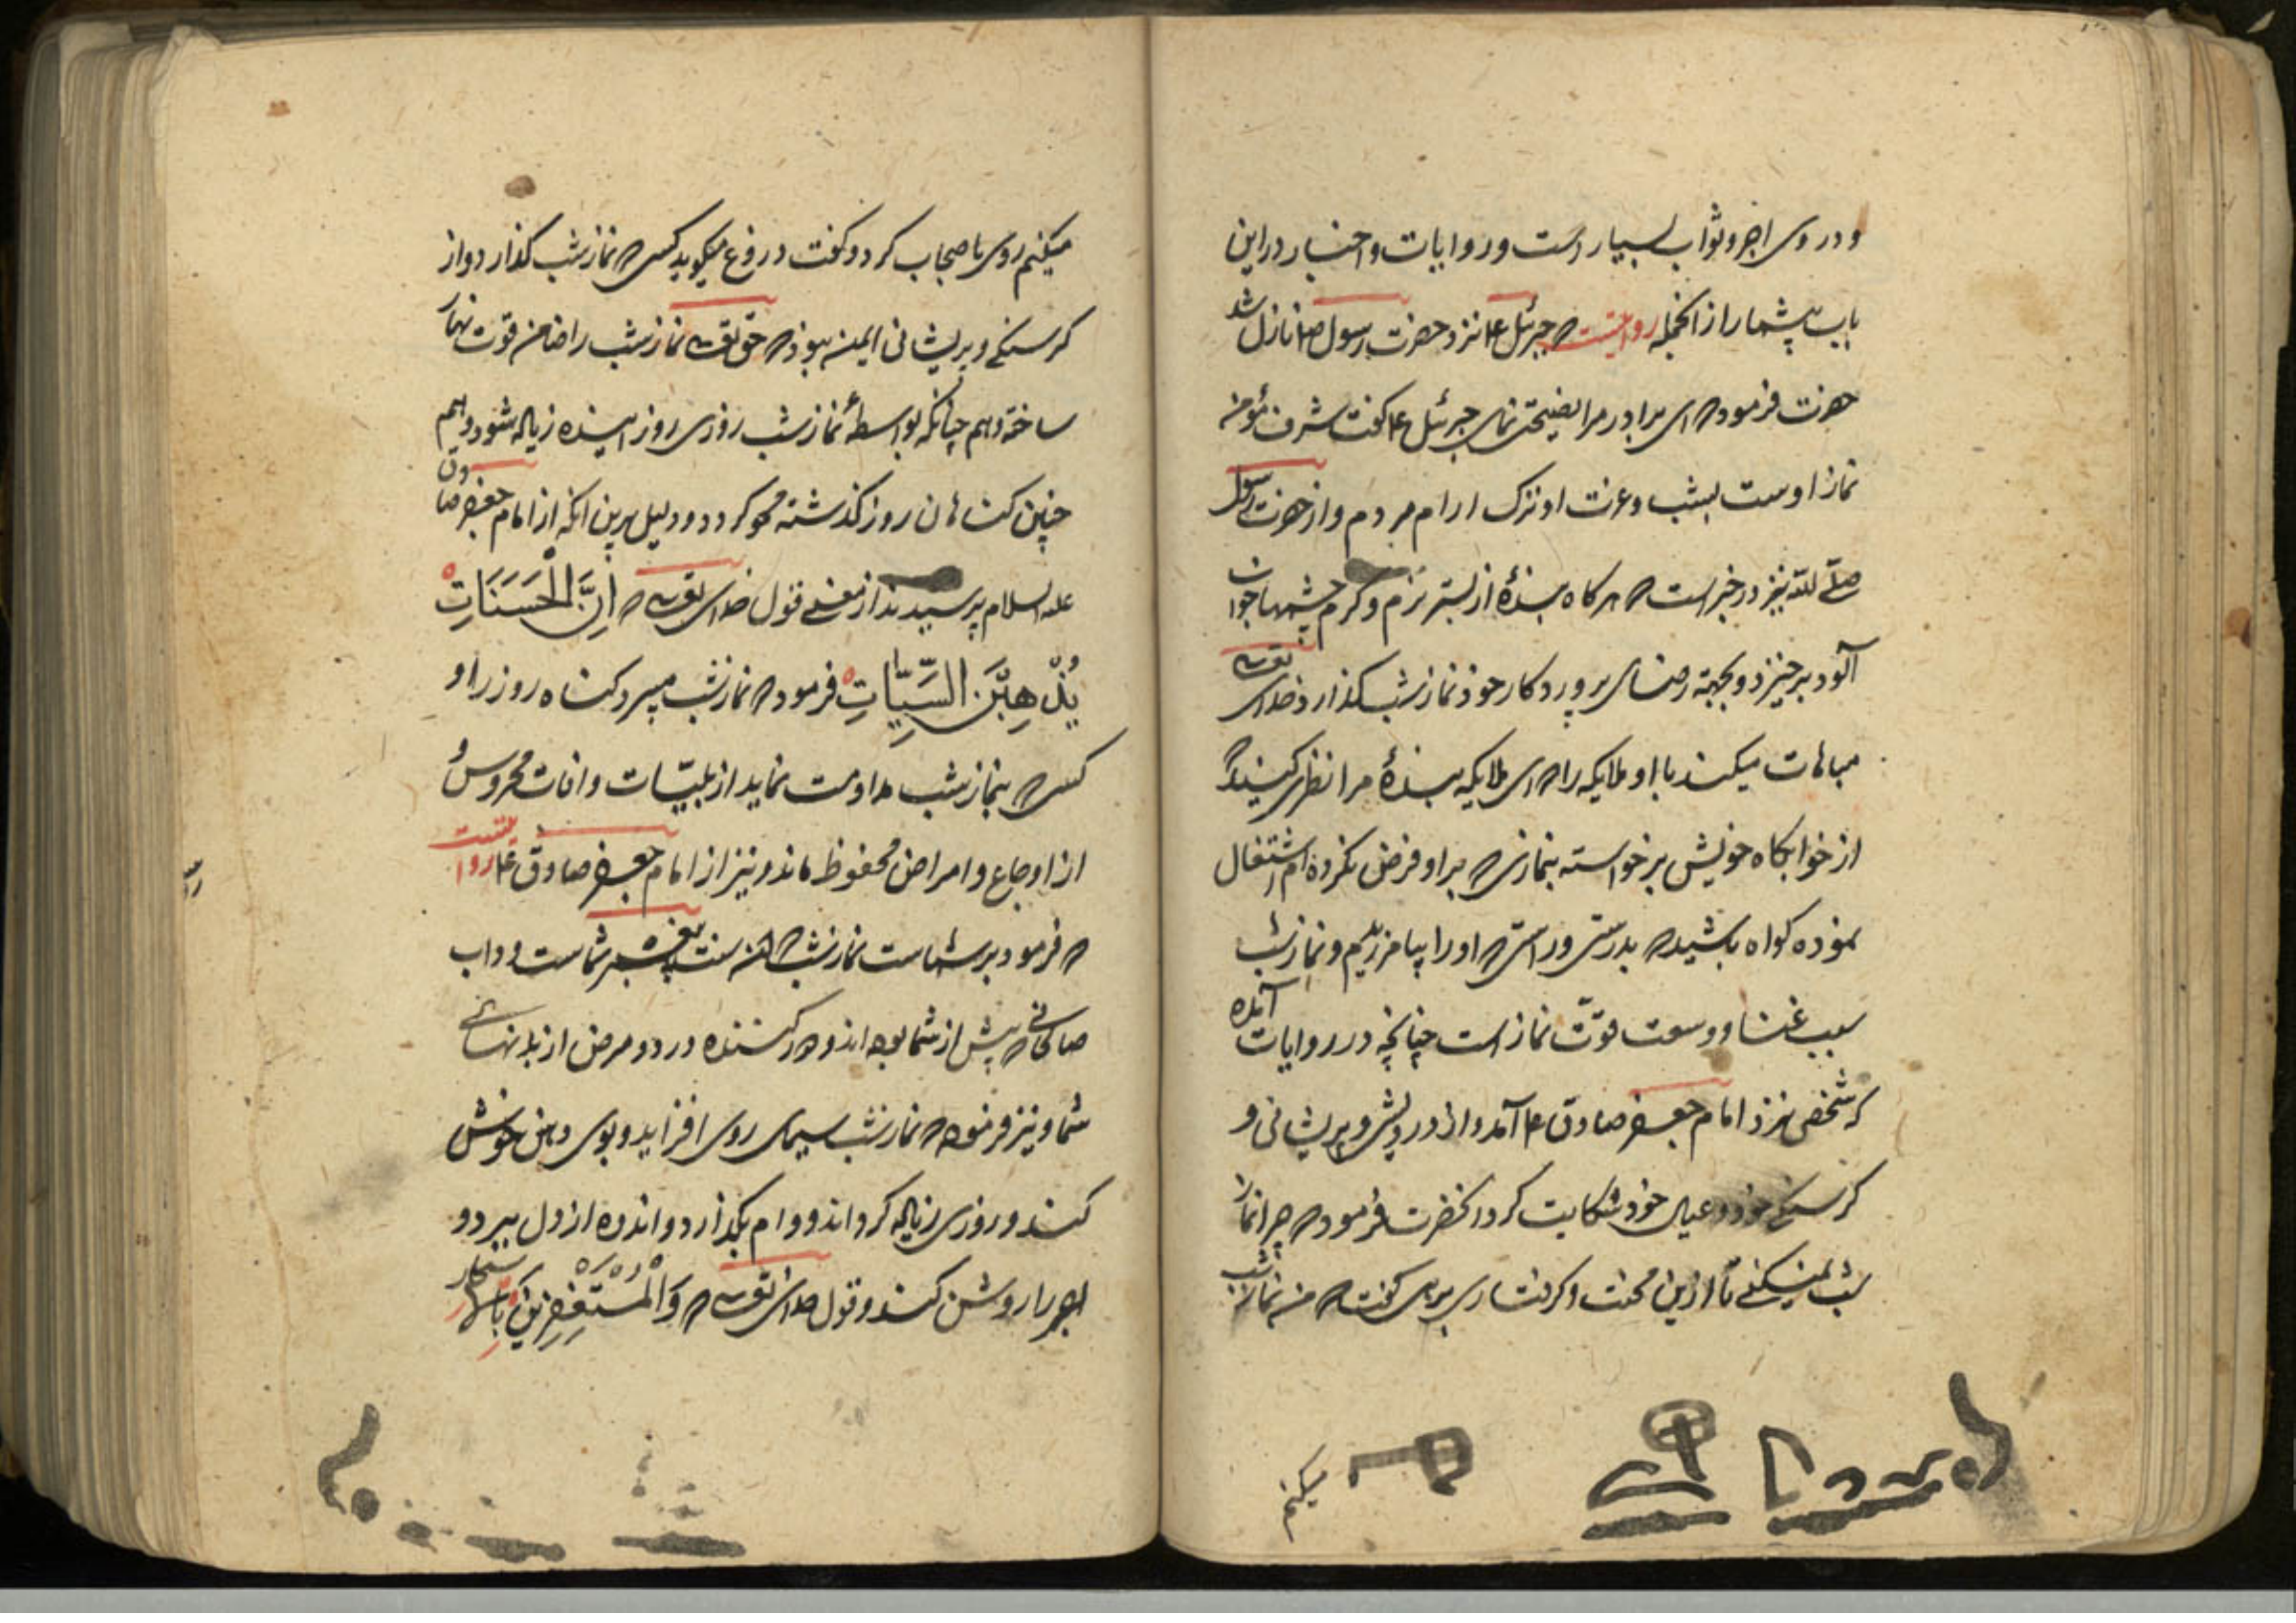 و در وی اجر و ثواب بسیار است و روایات و اخبار در این
باب بیشمار از انجمله روایتست که جبرئیل ع نزد حضرت رسول ص نازل شد
حضرت فرمود که ای برادر مرا نصیحتی نمای جبرئیل ع گفت شرف مؤمن
نماز اوست بشب و عزت او ترک ارام مردم و از حضرت رسول
صلی الله نیز در خبر است که هرگاه بندهٔ از بستر نرم و گرم چشمها خواب
آلود برخیزد و بجهته رضای پروردکار خود نماز شب کذارد خدای تعالی
مباهات میکند با او ملایکه را که ای ملایکه بندهٔ مرا نظر کنید که
از خوابکاه خویش برخواسته بنمازی که بر او فرض نکرده ام اشتغال
نموده کواه باشید که بدرستی و راستی که او را بیامرزیدم و نماز شب
سبب غنا و وسعت قوّت نماز است چنانچه در روایات آمده
که شخصی نزد امام جعفر صادق ع آمد و از درویشی و پریشانی و
کرسنکی خود و عیال خود شکایت کرد انحضرت فرمود که چرا نماز
شب نمیکنی تا ازین محنت و کرفتاری برهی کفت که من نماز شب
میکنم
میکنم روی باصحاب کرد و کفت دروغ میکوید کسی که نماز شب کذارد و از
کرسنکی و پریشانی ایمن نبود که حق تعالی نماز شب را ضامن قوت نهار
ساخته و هم چنانکه بواسطهٔ نماز شب روزی روز اینده زیاله شود و هم
چنین کناهان روز کذشته محو کردد و دلیل برین انکه از امام جعفر صادق
علیه السلام پرسیدند از معنی قول خدای تعالی که اِنَّ الْحَسَنَاتِ
یُذْهِبْنَ السَّیِّاٰتِ فرمود که نماز شب میبرد کناه روز را و
کسی که بنماز شب مداومت نماید از بلیّات و افات محروس و
از اوجاع و امراض محفوظ ماند و نیز از امام جعفر صادق ع روایتست
که فرمود بر شماست نماز شب که ان سنت پیغمبر شماست و داب
صالحانی که پیش از شما بوده اند و دور کننده درد و مرض از بدنهای
شما و نیز فرموده که نماز شب سیمای روی افزاید و بوی دهن خوش
کند و روزی زیاله کرداند و وام بکذارد و اندوه از دل ببرد و
بصر را روشن کند و قول خدای تعالی که وَالْمُسْتَغْفِرِینَ بِالْاَسْحَارِ